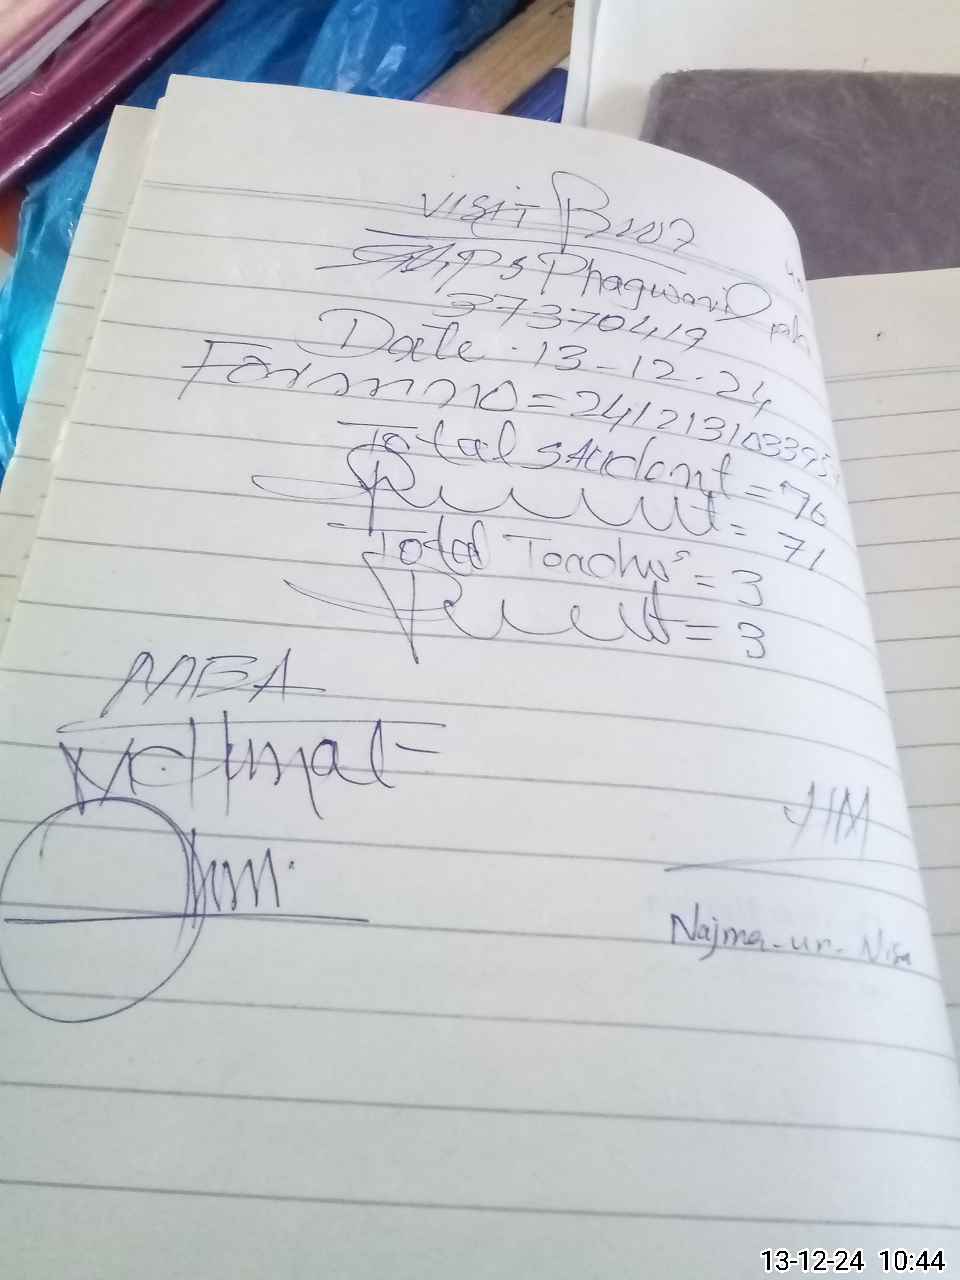 visit
Phagwari
37370419
Date . 13-12-24
Form no = 2412131033954
Total student = 76
Present = 71
Total Teachers = 3
Present = 3
MEA
HM
Najma-ur-Nisa
13-12-24 10:44